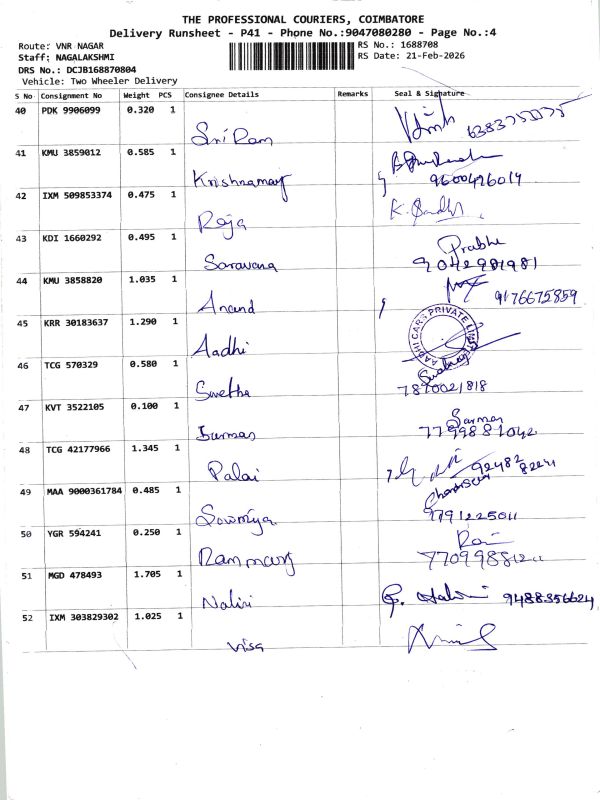 THE PROFESSIONAL COURIERS, COIMBATORE
Delivery Runsheet - P41 - Phone No.:9047080280 - Page No.:4
Route: VNR NAGAR
RS No.: 1688708
Staff: NAGALAKSHMI
RS Date: 21-Feb-2026
DRS No.: DCJB168870804
Vehicle: Two Wheeler Delivery
S No Consignment No Weight PCS Consignee Details Remarks Seal & Signature
40 PDK 9906099 0.320 1
Sri Ram
41 KMU 3859012 0.585 1
Krishnamary 9600496019
42 IXM 509853374 0.475 1
Raja
43 KDI 1660292 0.495 1 Prabhu
Saravana 9042981981
44 KMU 3858820 1.035 1
Anand 9176675859
45 KRR 30183637 1.290 1 AADHI CARS PRIVATE LIMITED
Aadhi
46 TCG 570329 0.580 1
Swetha
47 KVT 3522105 0.100 1 Sarmas
Sarmas 7799881042
48 TCG 42177966 1.345 1 92482
Palai 82241
49 MAA 9000361784 0.485 1
Sowmiya 9791225011
50 YGR 594241 0.250 1
51 MGD 478493 1.705 1
Nalini 9488356624
52 IXM 303829302 1.025 1
Visa